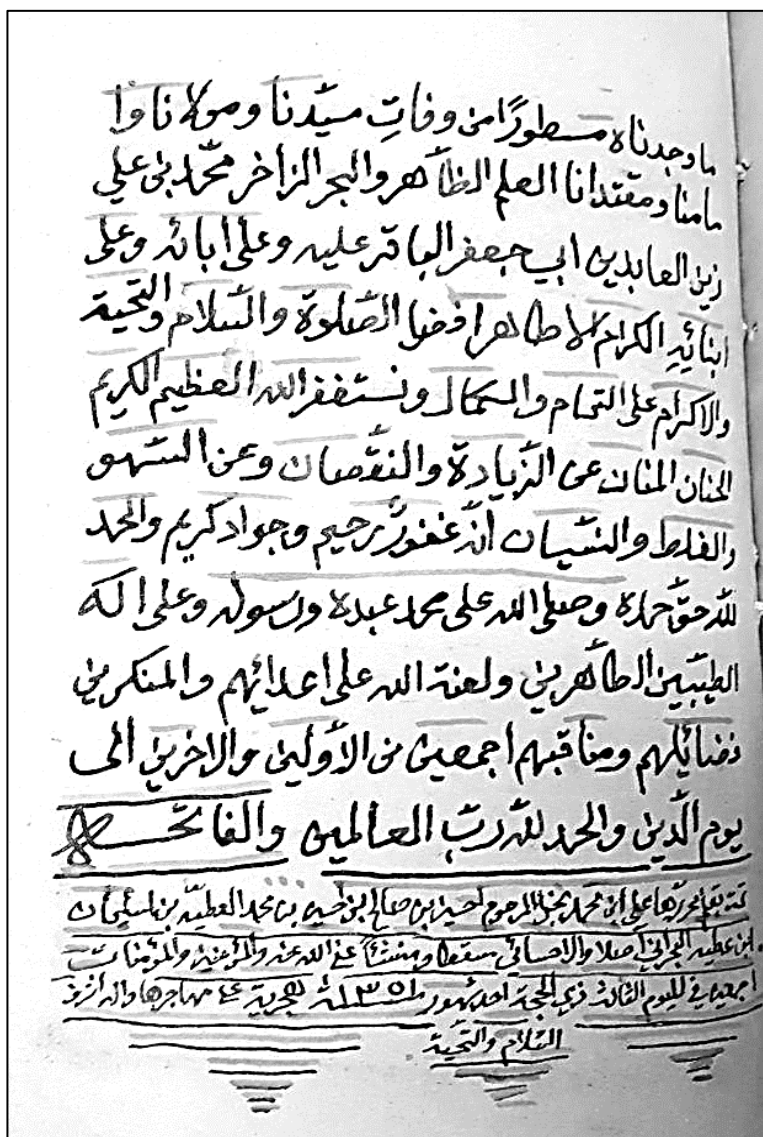 ما وجدناه مسطورًا من وفاتِ سيّدنا ومولانا وا
مامنا ومقتدانا العلم الظاهر والبحر الزاخر محمّد بن علي
زين العابدين ابي جعفر الباقر عليه وعلى ابائه وعلى
ابنائِهِ الكرام الاطاهر افضل الصّلوة والسّلام والتّحية
والاكرام على التمام والكمال ونستغفر الله العظيم الكريم
الحنان المنان عن الزّيادة والنّقصان وعن السّهو
والغلط والنسيان انّه غفورٌ رحيم وجواد كريم والحمد
لله حقّ حمده وصلى الله على محمد عبده ورسوله وعلى اله
الطيّبين الطاهرين ولعنة الله على اعدائهم والمنكرين
فضائلهم ومناقبهم اجمعين من الأولين والاخرين الى
يوم الدّين والحمد لله ربّ العالمين والفاتحــه
تمت بقلم محررها علي ابن محمد نجل المرحوم احسين ابن صالح ابن احسين بن محمد العطيّه بن اسليمان
ابن عطيه البحراني اصلا والاحسائي مسقطا ومنشئاً عفى الله عنه والمؤمنين والمؤمنات
اجمعين في لليوم الثالث ذي الحجة احد شهور ١٣٥١ سنة هجرية على مهاجرها واله اشرف
السّلام والتّحيّة